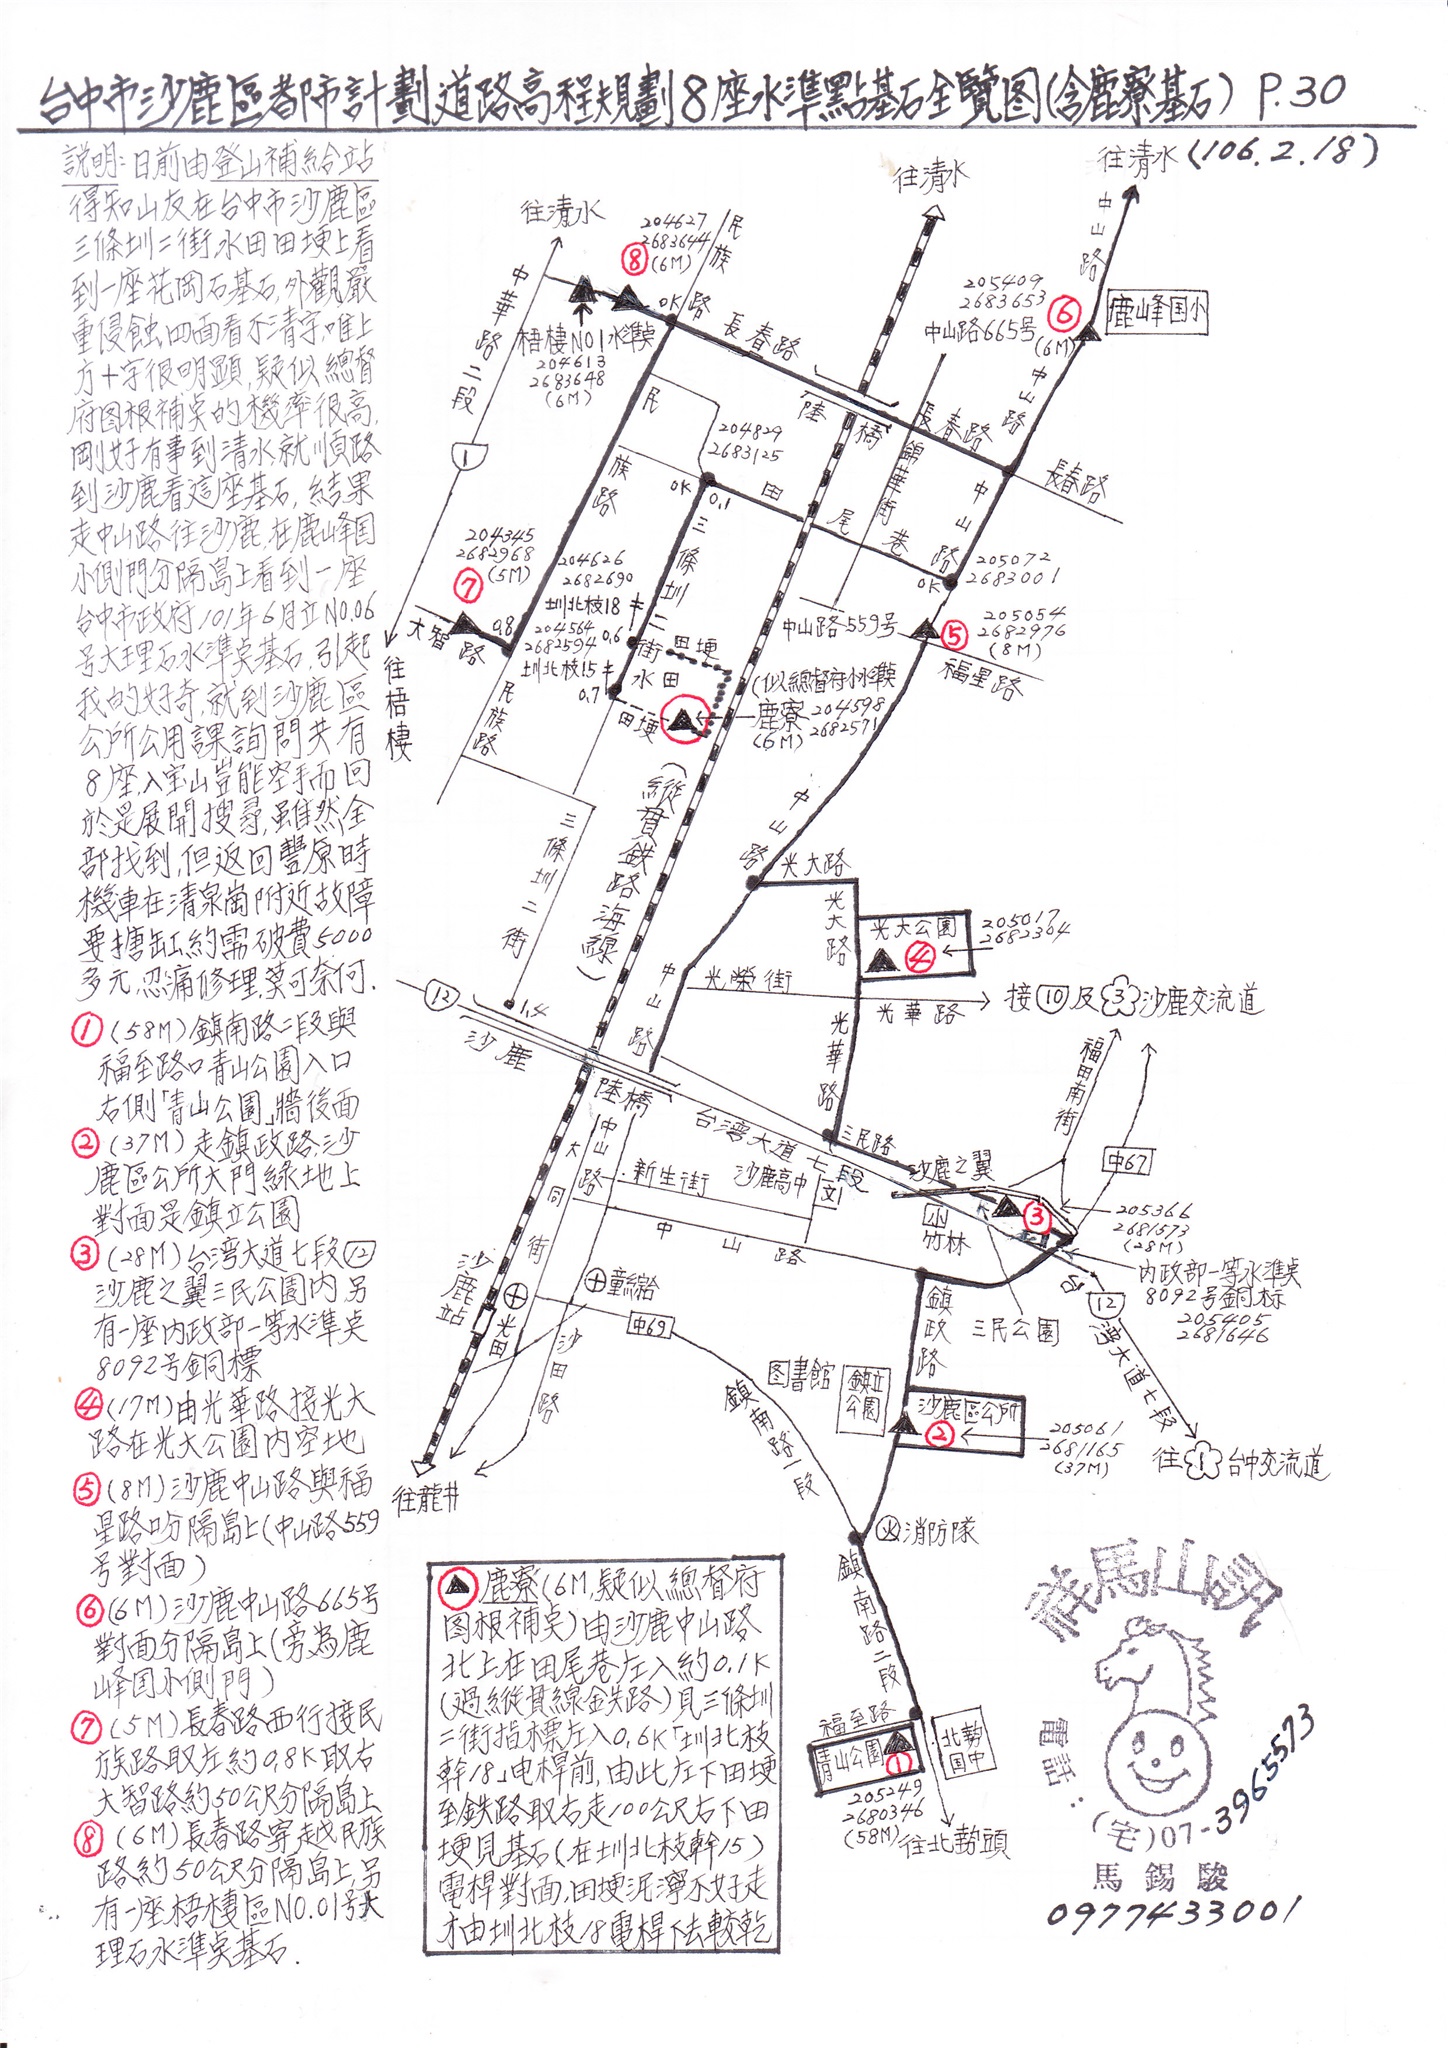 台中市沙鹿區都市計劃道路高程規劃8座水準點基石全覽图(含鹿寮基石) P.30
(106.2.18)
説明:日前由登山補給站
得知山友在台中市沙鹿區
三條圳二街水田田埂上看
到一座花岡石基石,外觀嚴
重侵蝕四面看不清字,唯上
方十字很明顯,疑似總督
府图根補点的機率很高,
剛好有事到清水,就順路
到沙鹿看這座基石,結果
走中山路往沙鹿,在鹿峰国
小側門分隔島上看到一座
台中市政府101年6月立NO.06
号大理石水準点基石,引起
我的好奇,就到沙鹿區
公所公用課詢問共有
8座,入宝山豈能空手而回
於是展開搜尋,雖然全
部找到,但返回豐原時
機車在清泉崗附近故障
要搪缸約需破費5000
多元,忍痛修理,莫可奈何.
①(58M)鎮南路二段與
福至路口青山公園入口
右側「青山公園」牆後面
②(37M)走鎮政路,沙
鹿區公所大門綠地上
對面是鎮立公園
③(28M)台湾大道七段⑫
沙鹿之翼三民公園内另
有一座内政部一等水準点
8092号銅標
④(17M)由光華路接光大
路在光大公園内空地
⑤(8M)沙鹿中山路與福
星路口分隔島上(中山路559
号對面)
⑥(6M)沙鹿中山路665号
對面分隔島上(旁為鹿
峰国小側門)
⑦(5M)長春路西行接民
族路取左約0.8K取右
大智路約50公尺分隔島上
⑧(6M)長春路穿越民族
路約50公尺分隔島上,另
有一座梧棲區NO.01号大
理石水準点基石.
往清水
往清水
往清水
204627
2683644
(6M)
⑧
OK
民族路
中華路二段
1
梧棲NO1水準点
204613
2683648
(6M)
長春路
陸橋
長春路
長春路
205409
2683653
中山路665号
(6M)
⑥
鹿峰国小
中山路
中山路
中山路
錦華街
民族路
204829
2683125
OK
0.1
田尾巷
205072
2683001
OK
204345
2682968
(5M)
⑦
大智路
0.8
民族路
往梧棲
三條圳二街
204626
2682690
圳北枝18
204564
2682594
圳北枝15
0.6
0.7
田埂
水田
田埂
(似總督府小水準点
鹿寮 204598
(6M) 2682571
中山路559号
⑤
205054
2682976
(8M)
福星路
(縱貫鉄路海線)
三條圳二街
1.4
中山路
光大路
光大路
光大公園
④
205017
2682304
中山路
光榮街
光華路
接⑩及③沙鹿交流道
光華路
12
沙鹿
陸橋
台湾大道七段
三民路
沙鹿之翼
福田南街
中67
中山路
大同街
新生街
沙鹿高中
文
小
竹林
③
205366
2681573
(28M)
内政部一等水準点
8092号銅标
205405
2681646
中山路
三民公園
12
台湾大道七段
往①台中交流道
沙鹿站
光田
童綜合
沙田路
中69
鎮政路
图書館
鎮立公園
沙鹿區公所
②
205061
2681165
(37M)
鎮南路一段
往龍井
火 消防隊
鎮南路二段
福至路
青山公園
①
北勢国中
205249
2680346
(58M)
往北勢頭
鹿寮(6M,疑似總督府
图根補点)由沙鹿中山路
北上在田尾巷左入約0.1K
(過縱貫線鉄路)見三條圳
二街指標左入0.6K「圳北枝
幹18」电桿前,由此左下田埂
至鉄路取右走100公尺右下田
埂見基石(在圳北枝幹15)
電桿對面,田埂泥濘不好走
由圳北枝18電桿下去較乾
電話:
(宅)07-3965573
馬錫駿
0977433001